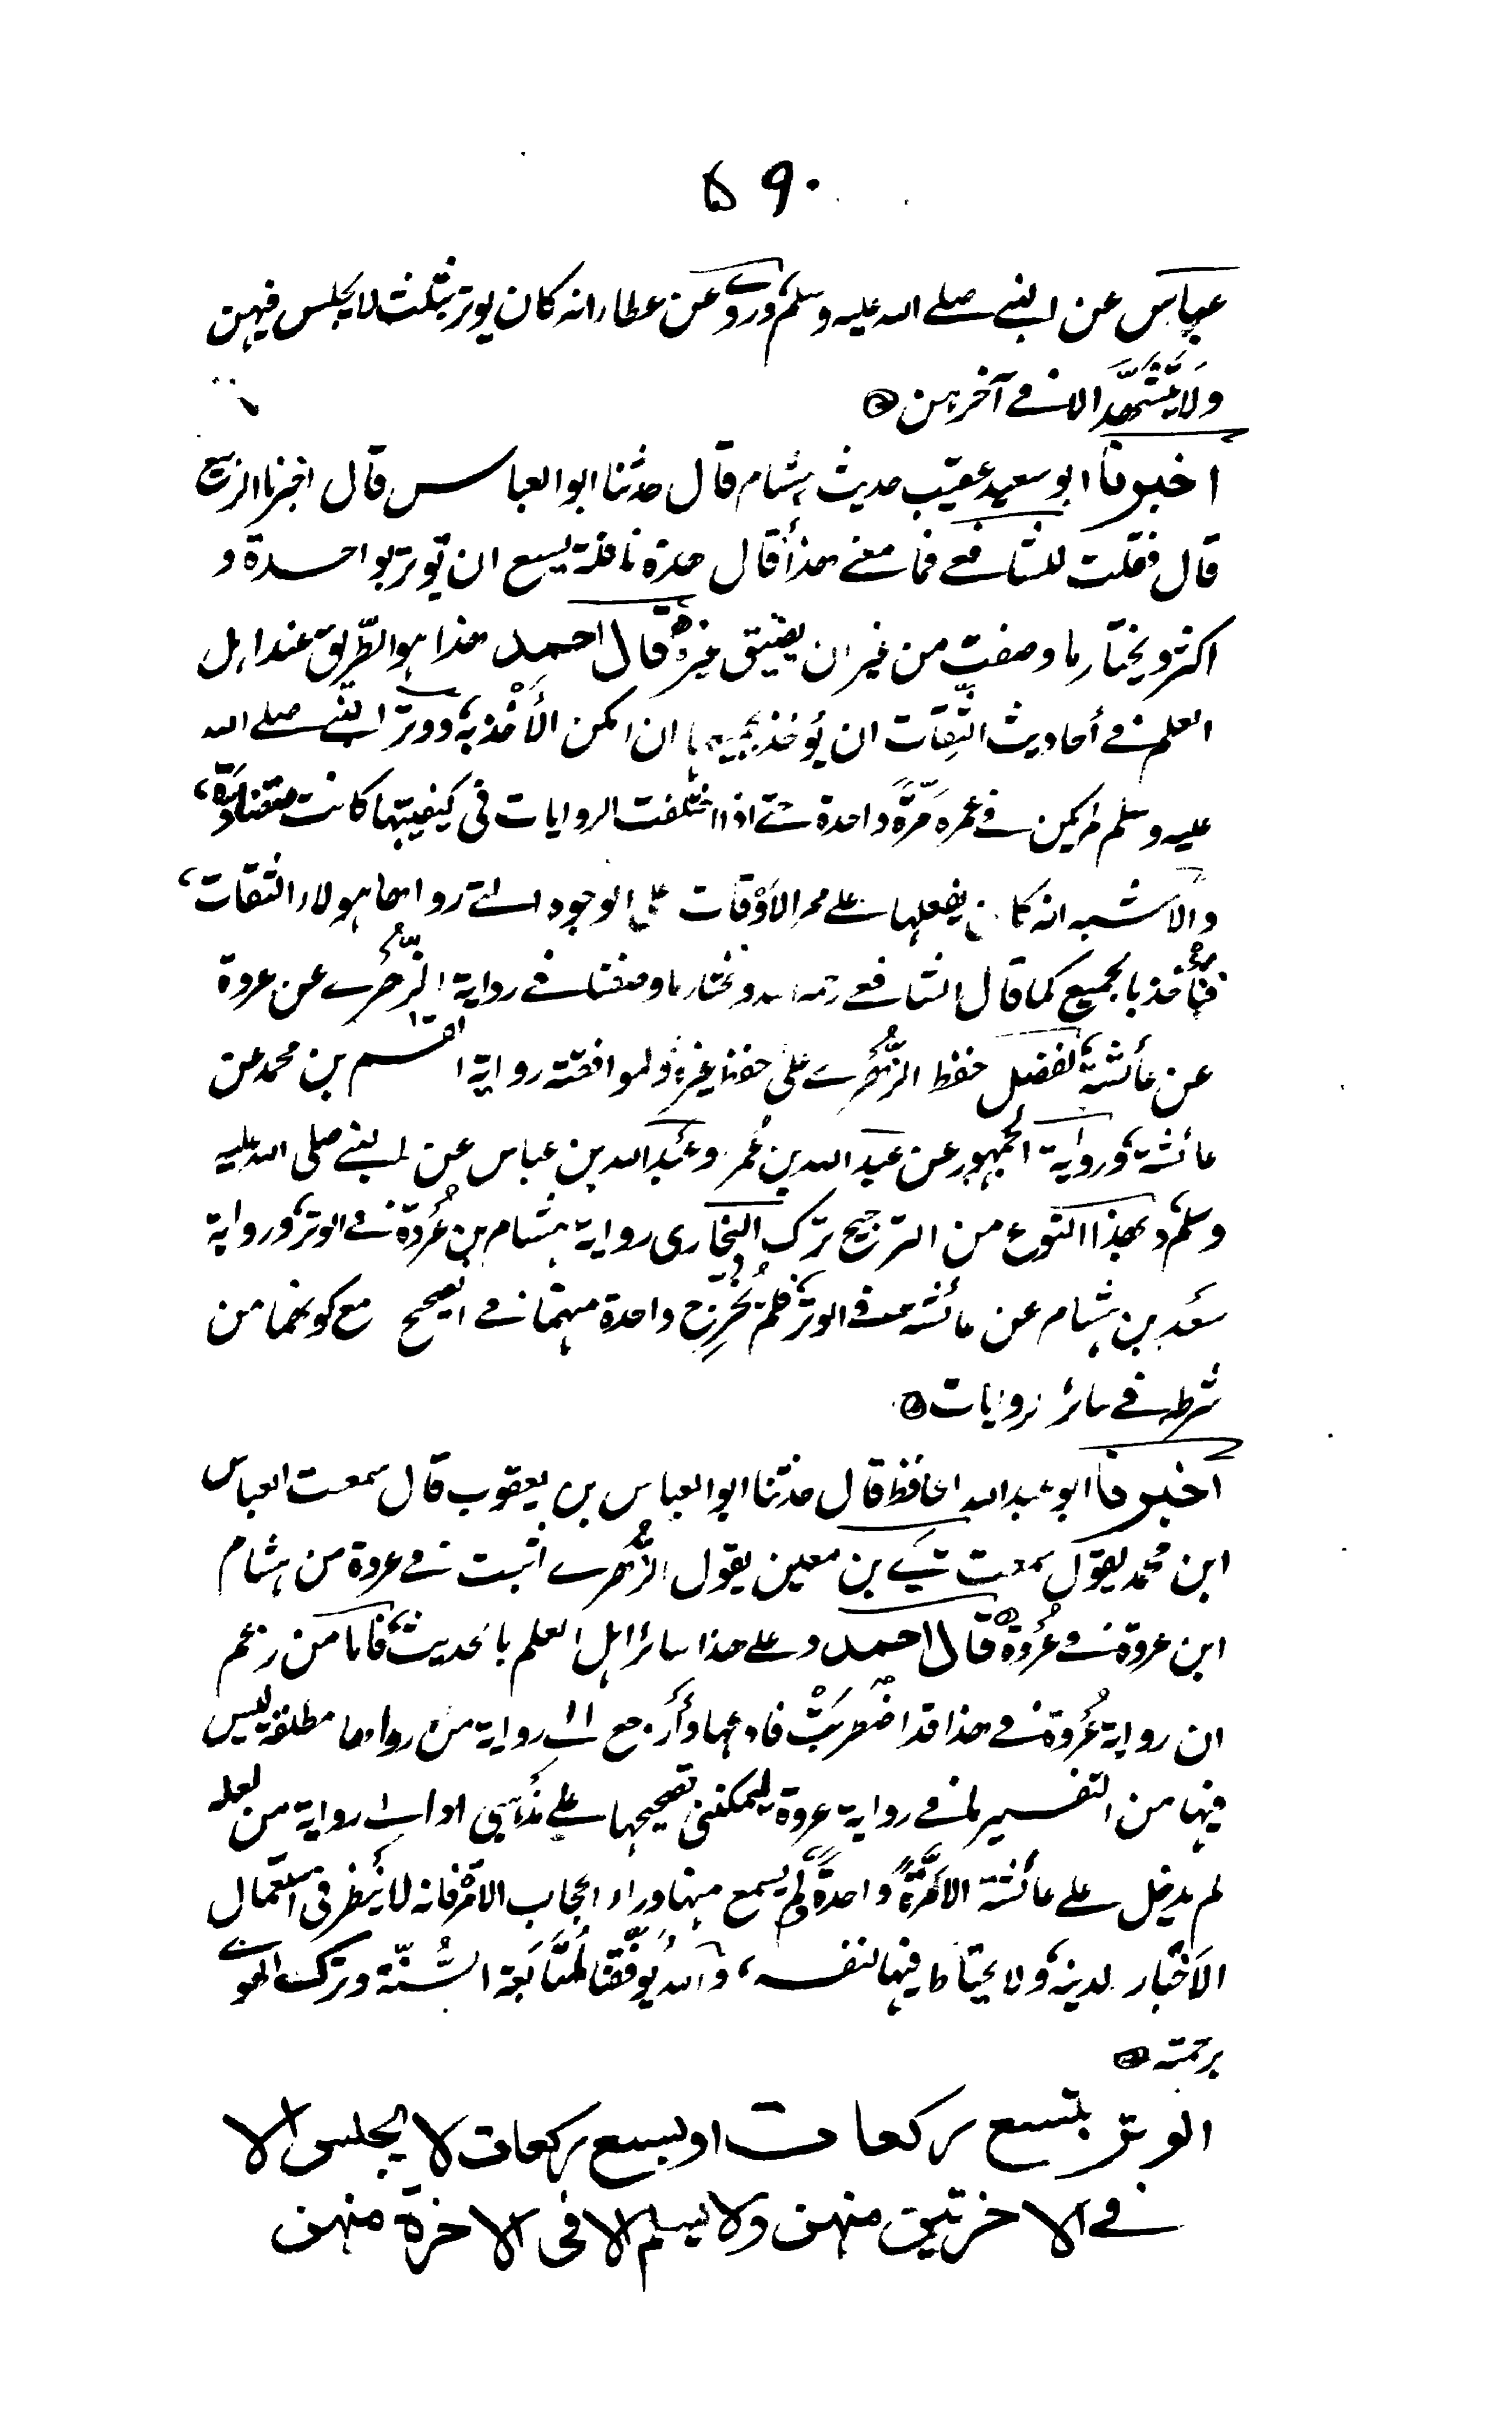 ۵۹۰
عباس عن النبي صلى الله عليه وسلم، وروي عن عطاء انه كان يوتر بثلث لا يجلس فيهن
ولا يَتَشَهَّد الا في آخرهن
اخبرنا ابو سعيد عقيب حديث هشام قال حدثنا ابو العباس قال اخبرنا الربيع
قال فقلت للشافعي فما معنى هذا قال هذه نافلة يسع ان يوتر بواحدة و
اكثر ويختار ما وصفت من غير ان يضيق غيره قال احمد هذا هو الطريق عند اهل
العلم في أحاديث الثِّقات ان يُوخذ بجميعها ان امكن الأَخْذ به، ووتر النبي صلى الله
عليه وسلم لم يكن في عمره مَرَّةً واحدة حتى اذا اختلفت الروايات في كيفيتها كانت متضادة،
والأشبه انه كان يفعلها على ممر الأَوْقات على الوجوه التي رواها هولاء الثقات،
فنأخذ بالجميع كما قال الشافعي رحمه الله ونختار ما وصفنا في رواية الزُّهري عن عروة
عن عائشة، لفضل حفظ الزُّهري على حفظ غيره ولموافقته رواية القسم بن محمد عن
عائشة، ورواية الجمهور عن عبد الله بن عُمر وعبد الله بن عباس عن النبي صلى الله عليه
وسلم، وبهذا النوع من الترجيح ترك البخاري رواية هشام بن عُروة في الوتر، ورواية
سعد بن هشام عن عائشة في الوتر، فلم يُخَرِّج واحدة منهما في الصحيح مع كونهما من
شرطه في سائر الروايات
اخبرنا ابو عبد الله الحافظ قال حدثنا ابو العباس بن يعقوب قال سمعت العباس
ابن محمد يقول سمعت يحيى بن معين يقول الزُّهري اثبت في عروة من هشام
ابن عروة في عُروة قال احمد وعلى هذا سائر اهل العلم بالحديث، فاما من زعم
ان رواية عُروة في هذا قد اضْطربَتْ فادعها وأرجع الى رواية من رواها مطلقة ليس
فيها من التفسير ما في رواية عروة ليمكنني تصحيحها على مذهبي او الى رواية من لعله
لم يدخل على عائشة الا مَرَّةً واحدةً ولم يسمع منها وراء الحجاب الامر فانه لا ينظر في استعمال
الأخبار لدينه، ولا يحتاط فيها لنفسه، والله يُوَفِّقنا لمُتَابَعة السُّنّة وترك الهوى
برحمته
الوتر بتسع ركعات او بسبع ركعات لا يجلس الا
في الاخرتين منهن ولا يسلم الا في الاخرة منهن